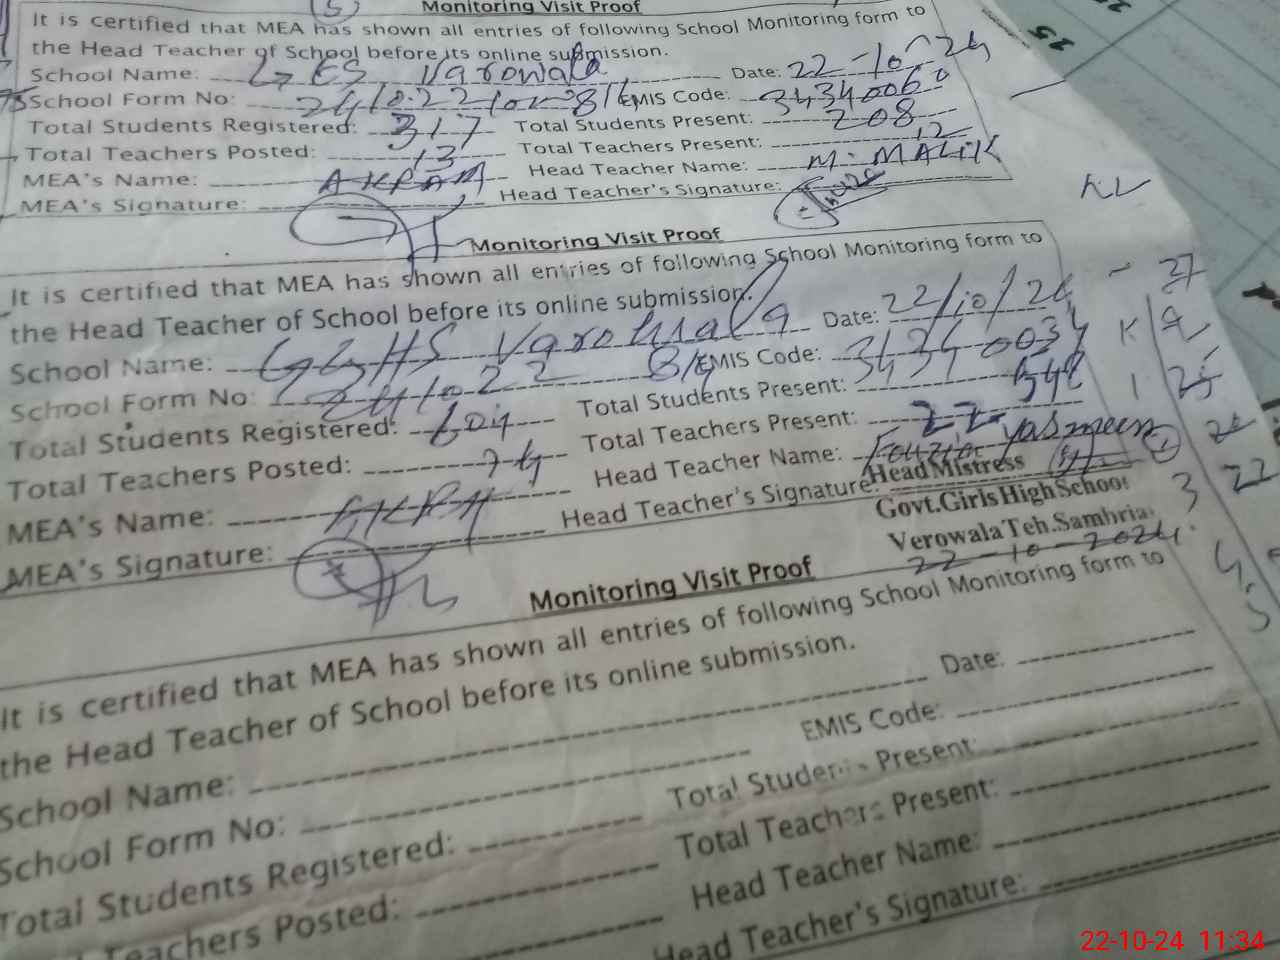 Monitoring Visit Proof
It is certified that MEA has shown all entries of following School Monitoring form to
the Head Teacher of School before its online submission.
School Name: ES Varowala Date: 22-10-24
School Form No: EMIS Code: 34340060
Total Students Registered: 317 Total Students Present: 208
Total Teachers Posted: 13 Total Teachers Present: 12
MEA's Name: AKRAM Head Teacher Name: M. MALIK
MEA's Signature: Head Teacher's Signature:
Monitoring Visit Proof
It is certified that MEA has shown all entries of following School Monitoring form to
the Head Teacher of School before its online submission.
School Name: GGHS Varowala Date: 22/10/24
School Form No: 241022 EMIS Code: 34340034
Total Students Registered: 604 Total Students Present: 548
Total Teachers Posted: 24 Total Teachers Present: 22
MEA's Name: Head Teacher Name: Fouzia Yasmeen
MEA's Signature: Head Teacher's Signature:
Head Mistress
Govt. Girls High School
Verowala Teh. Sambria
22-10-2024
Monitoring Visit Proof
It is certified that MEA has shown all entries of following School Monitoring form to
the Head Teacher of School before its online submission.
School Name: Date:
School Form No: EMIS Code:
Total Students Registered: Total Students Present:
Teachers Posted: Total Teachers Present:
Head Teacher Name:
Head Teacher's Signature:
25
27
25
3 22
22-10-24 11:34